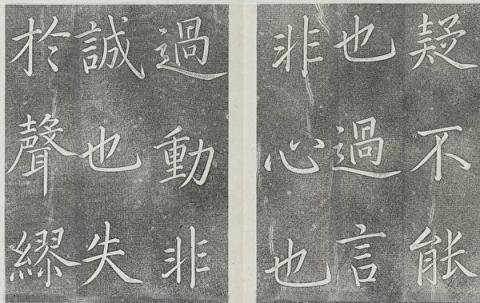 疑不能
也過言
非心也
過動非
誠也失
於聲繆